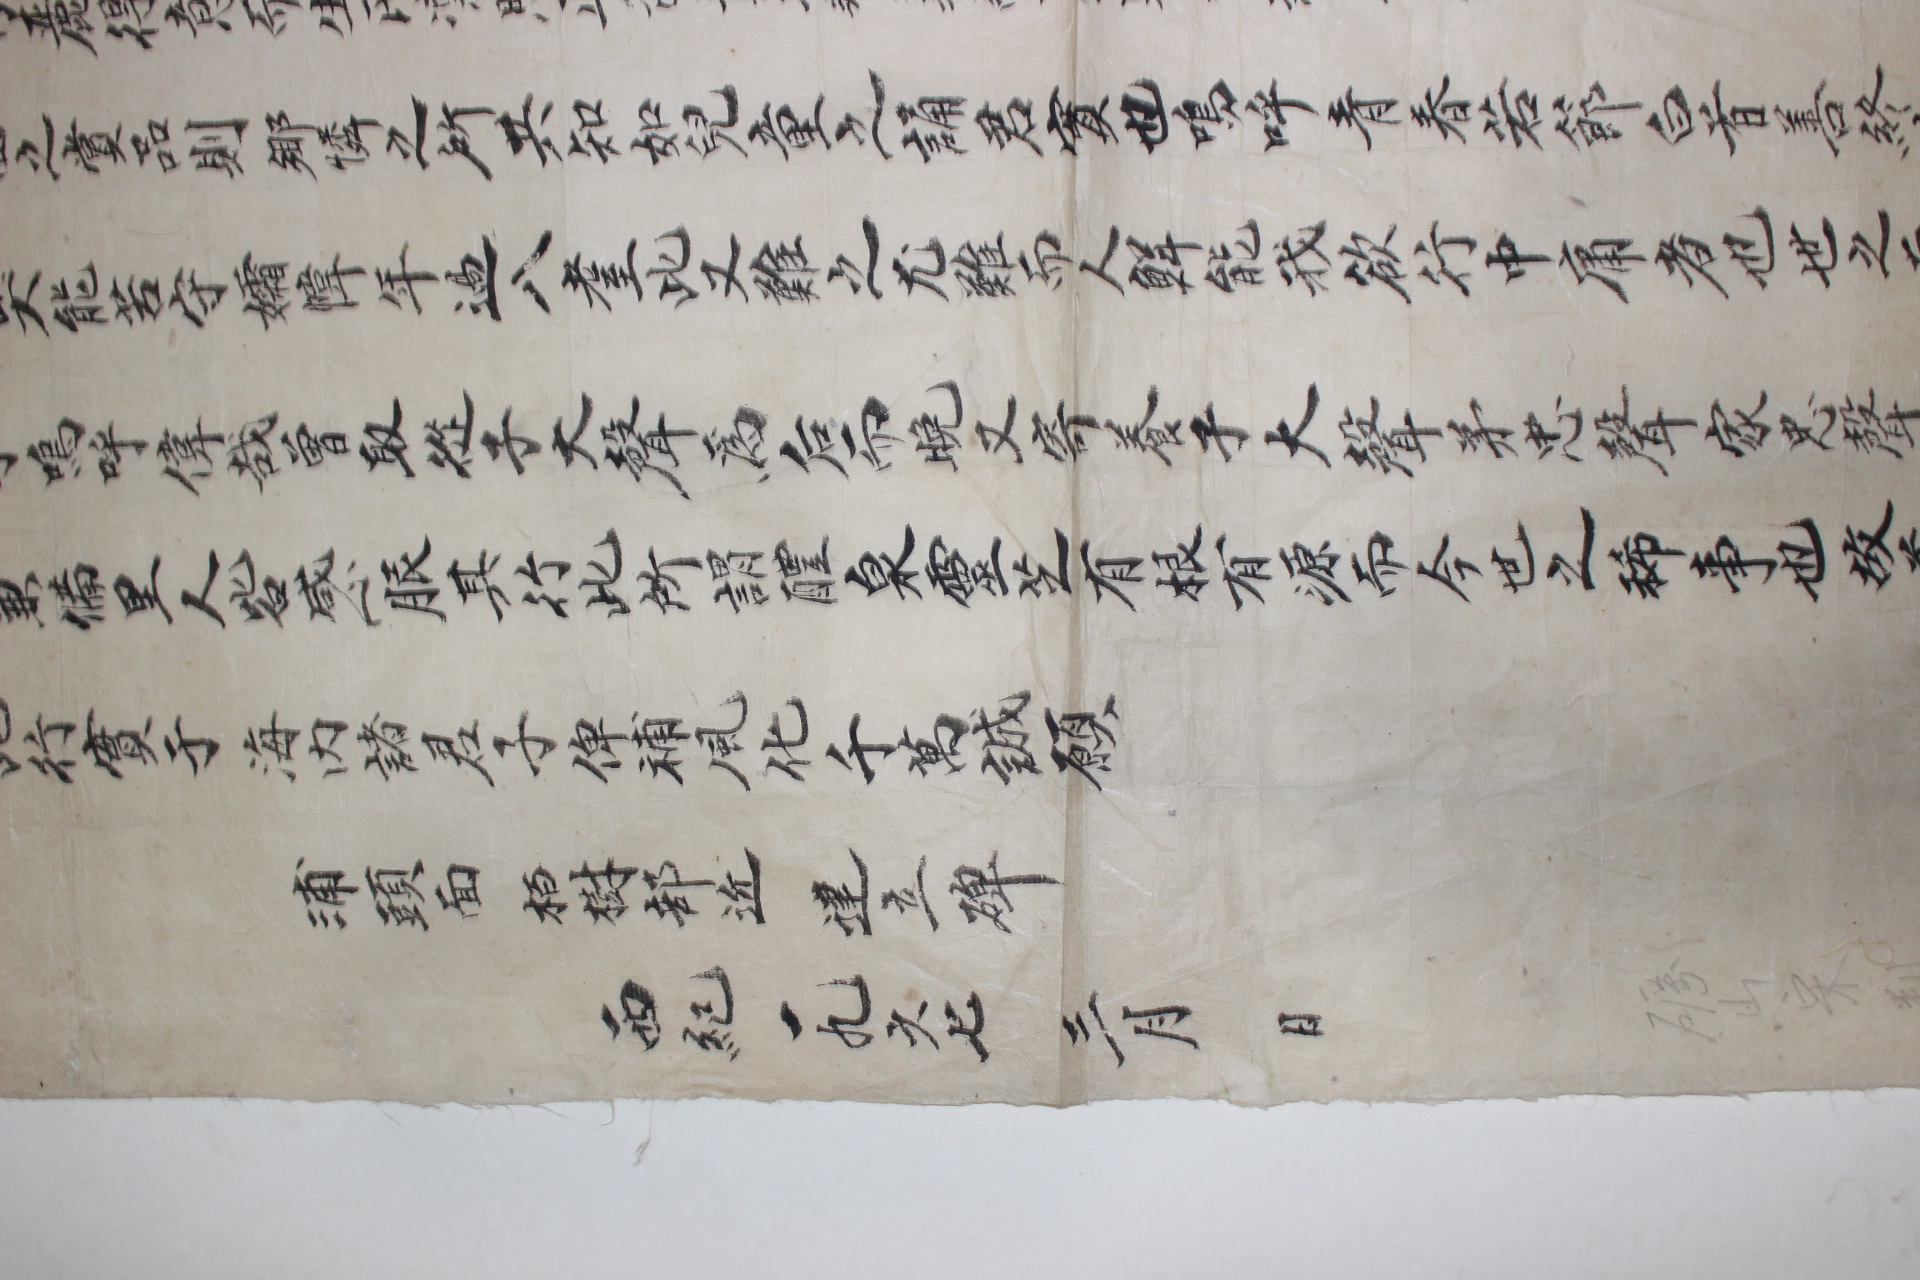 麗得意而生
之賞品則 鄉憐之所共知如兒童之誦君實也嗚呼青春若節白首善終
能苦守孀幃年過八耋此又難之尤難而人鮮能我欲行中庸者也世之
嗚呼偉哉曾取從子大聲爲后而晩又寄養子大聲弟忠聲家忠聲
兼備里人咎感服其行此所謂醴泉靈芝有根有源而今世之稀事也故
行實于 海內諸君子俾補風化千萬誠願
浦頭面 栢樹部近 建立碑
西紀 一九六七 三月 日
礪山宋